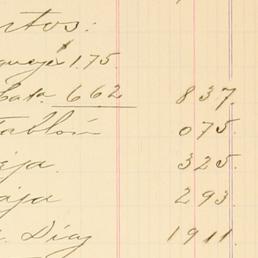 rtos:
queje $1.75.
Cata. 662 837.
Tablón 075.
eja. 325.
aja 293.
a. Díaz 1911.